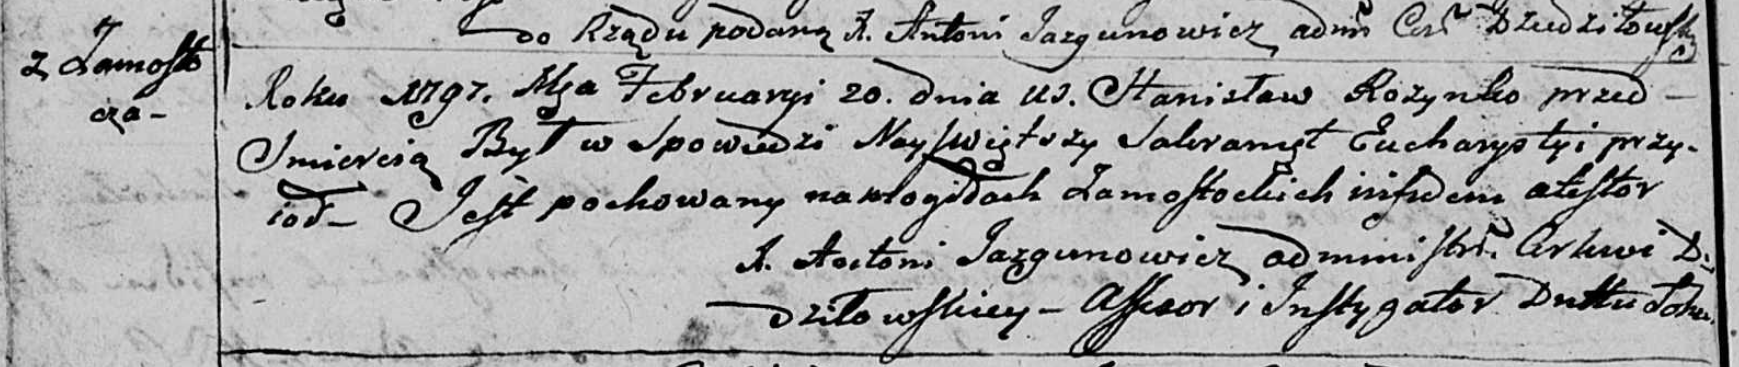 do Rządu podaną X. Antoni Jazgunowicz adm Cer Dziedziłowsky
z Zamosto
cza-
Roku 1797. Mca Februaryi 20. dnia us. Stanisław Rozynko przed-
Smiercią Był w Spowiedzi Nayswiętszy Sakrament Eucharystyi przy-
ioł- Jest pochowany na mogiłach Zamostockich in fidem atestor
X. Antoni Jazgunowicz administr. Cerkwi
dziłowskiey- Assesor i Instygator